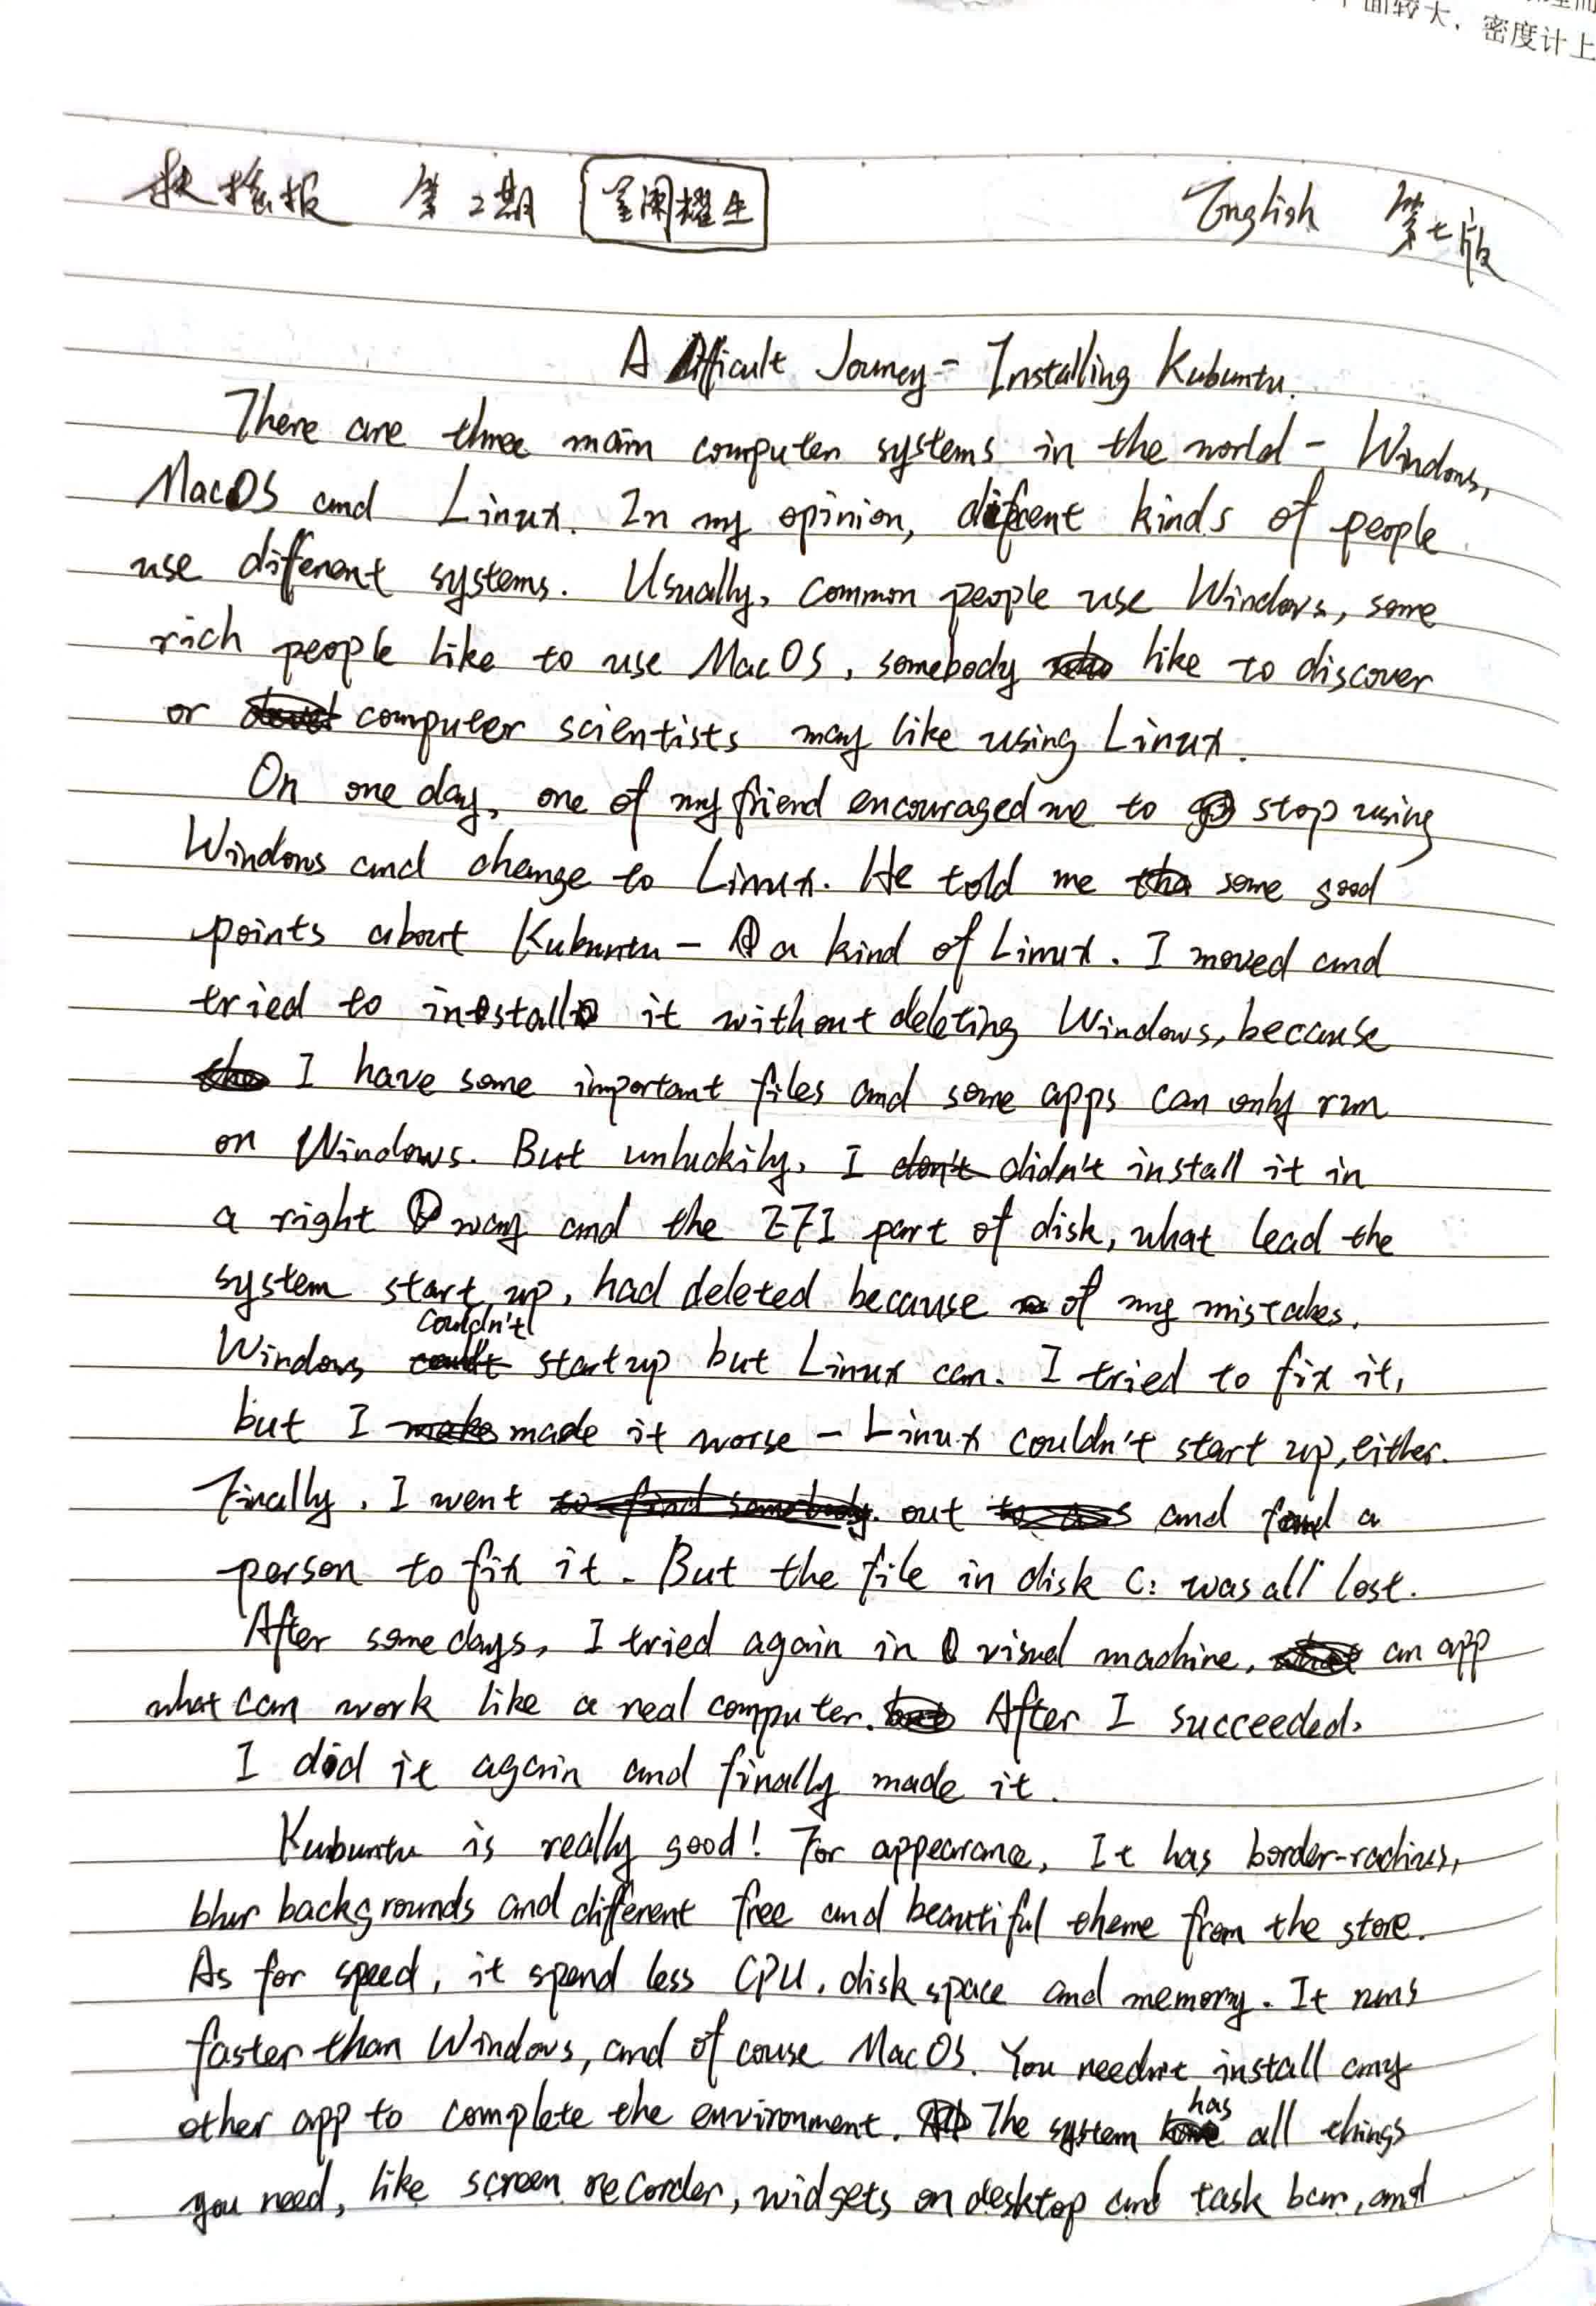 面较大，密度计上
扶摇报 第2期 星阑耀生 English 第七版
A Difficult Jouney - Installing Kubuntu.
There are three main computer systems in the world - Windows,
MacOS and Linux. In my opinion, different kinds of people
use different systems. Usually, common people use Windows, some
rich people like to use MacOS, somebody like to discover
or computer scientists may like using Linux.
On one day, one of my friend encouraged me to stop using
Windows and change to Linux. He told me some good
points about Kubuntu - a kind of Linux. I moved and
tried to install it without deleting Windows, because
I have some important files and some apps can only run
on Windows. But unluckily, I didn't install it in
a right way and the EFI part of disk, what lead the
system start up, had deleted because of my mistakes.
Windows couldn't start up but Linux can. I tried to fix it,
but I made it worse - Linux couldn't start up, either.
Finally, I went out and found a
person to fix it. But the file in disk C: was all lost.
After some days, I tried again in visual machine, an app
what can work like a real computer. After I succeeded,
I did it again and finally made it.
Kubuntu is really good! For appearance, It has border-radius,
blur backgrounds and different free and beautiful theme from the store.
As for speed, it spend less CPU, disk space and memory. It runs
faster than Windows, and of couse MacOS. You needn't install any
other app to complete the environment. The system has all things
you need, like screen recorder, widgets on desktop and task bar, and